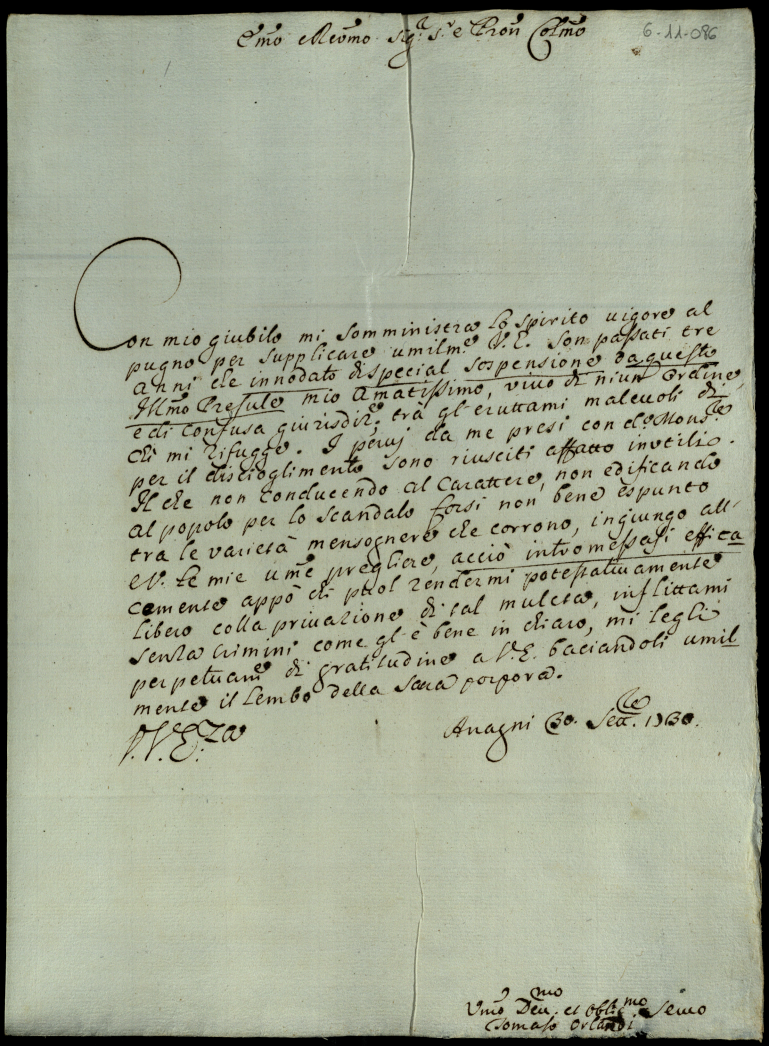 Emo e Reumo Sig.r S.r e Pron Colmo
6-11-086
Con mio giubilo mi somministra lo spirito vigore al
pugno per supplicare umilm.e V.E. son passati tre
anni che innodato di special sospensione da questo
Illmo Presule mio Amatissimo, vivo di niun Ordine,
e di confusa giurisdiz.e tra gl'eruttami malevoli di
chi mi rifugge. I passi da me presi con do Mons.re
per il discioglimento sono riusciti affatto inutili.
Il che non conducendo al Carattere, non edificando
al popolo per lo scandalo forsi non bene espunto
tra le varietà mensognere che corrono, ingiungo all'
E.V. le mie ume preghiere, acciò intromessasi effica
cemente appo chi puol rendermi potestativamente
libero colla privazione di tal mulcta, inflittami
senza crimini come gl'è bene in chiaro, mi leghi
perpetuam.e di gratitudine a V.E. baciandoli umil
mente il lembo della sacra porpora.
Anagni 30. Sett.re 1730.
V.E.za
Umo Deu.mo et Obblig.mo Seruo
Tomaso Orlandi